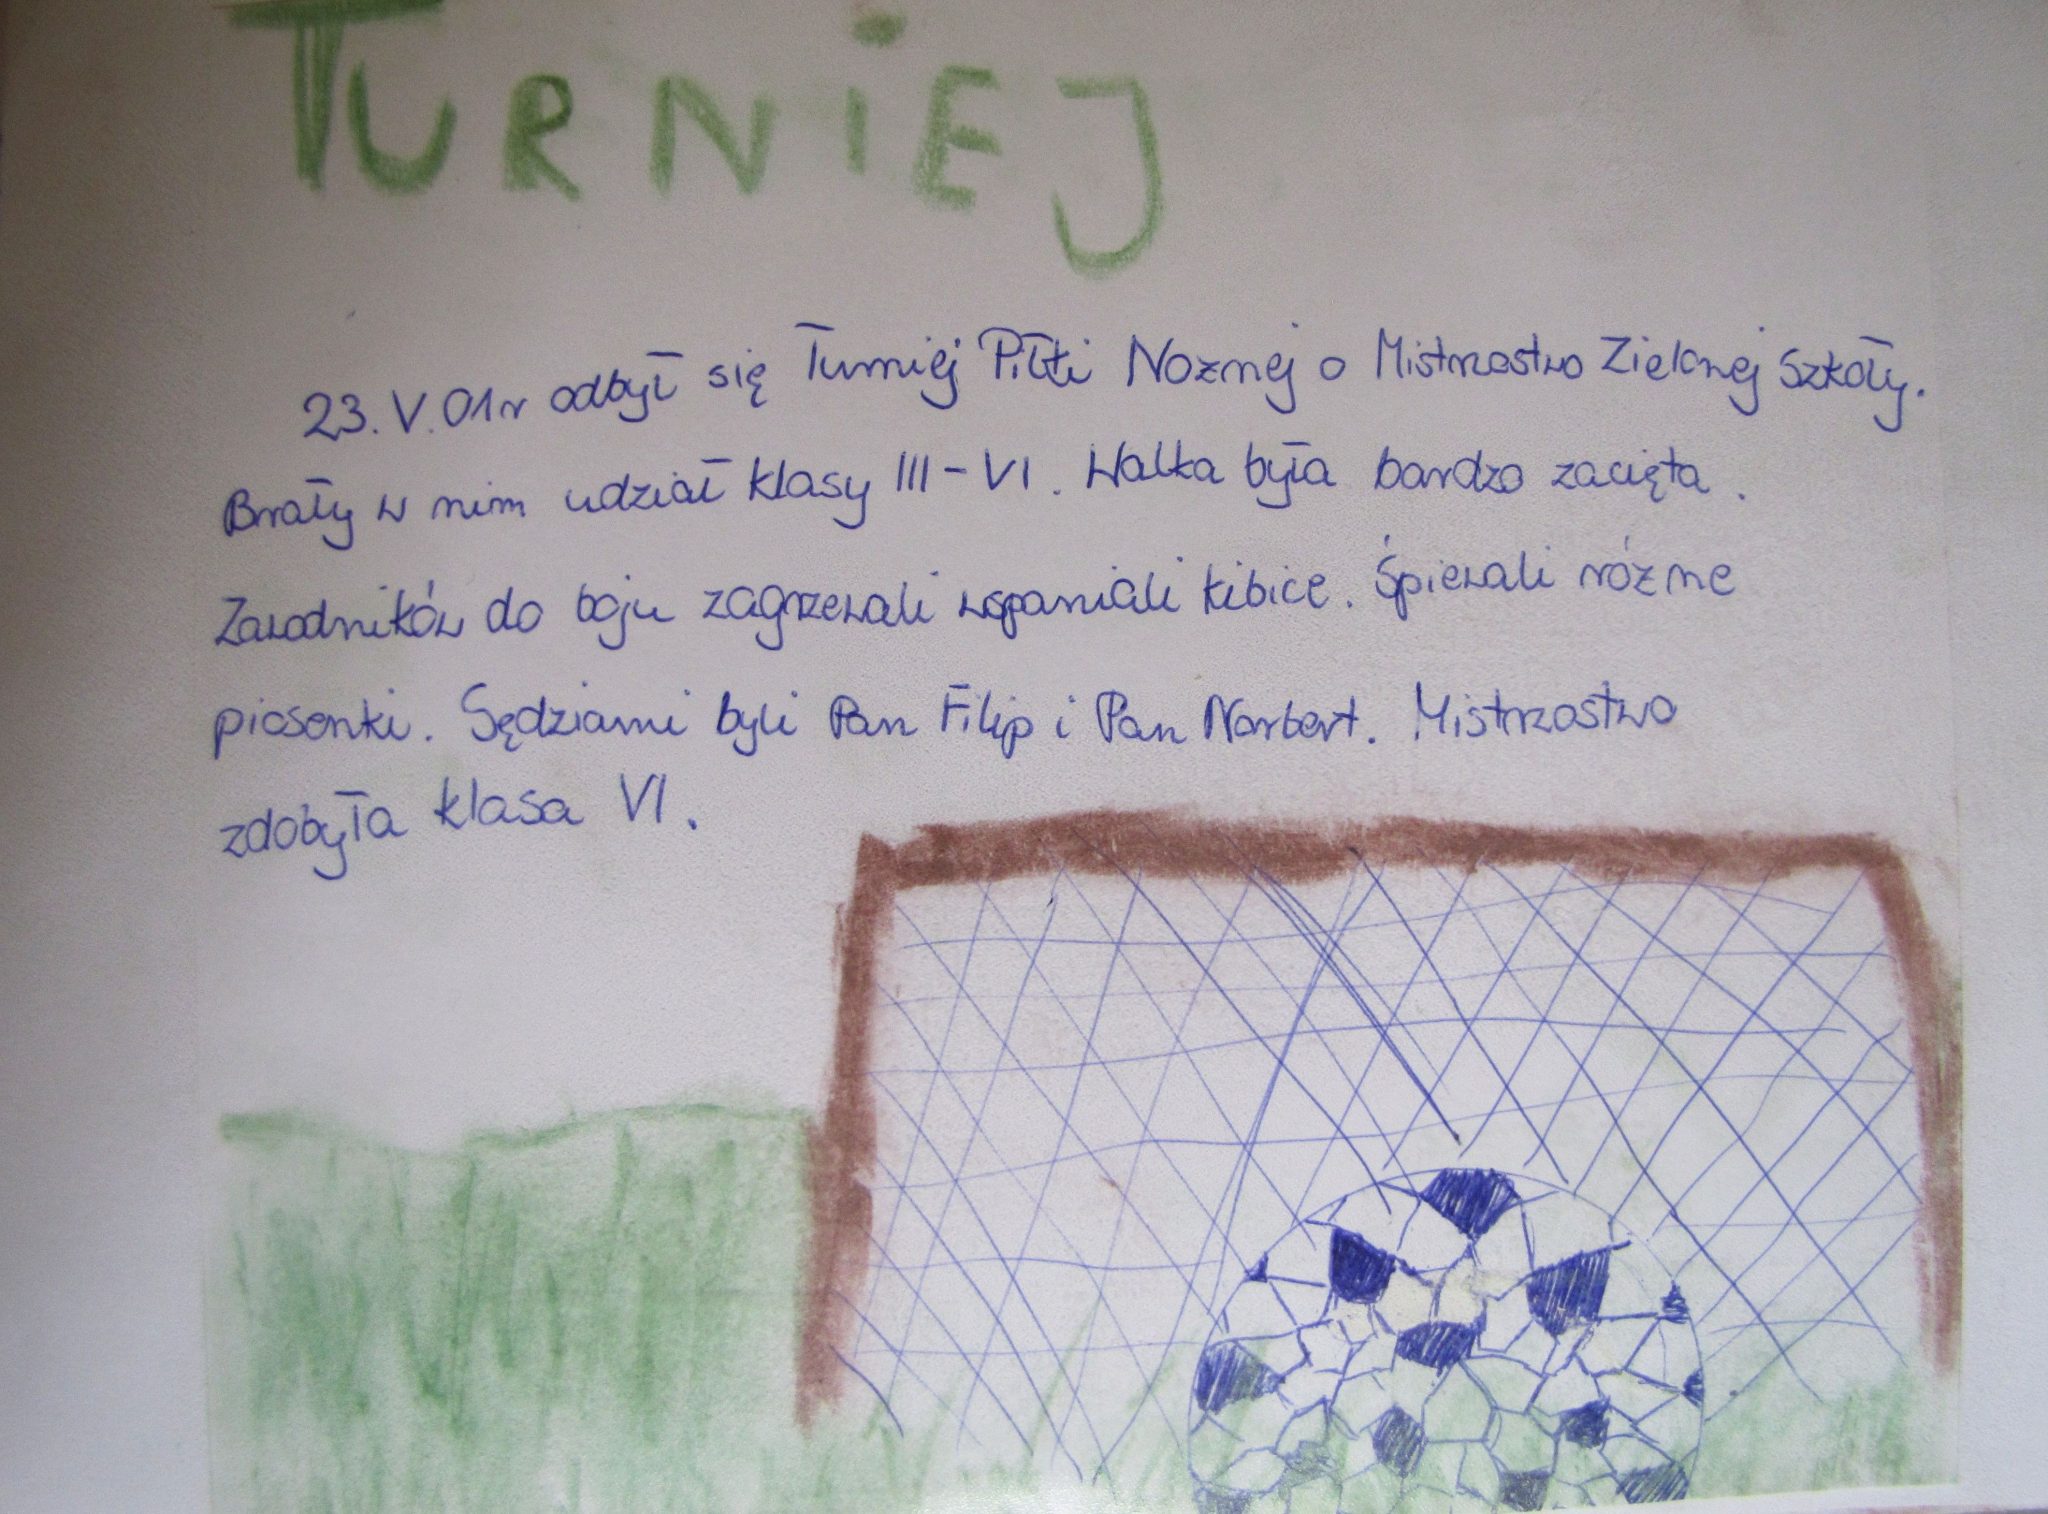 TURNiEJ
23.V.01r odbył się Turniej Piłki Nożnej o Mistrzostwo Zielonej Szkoły.
Brały w nim udział klasy III-VI. Walka była bardzo zacięta.
Zawodników do boju zagrzewali wspaniali kibice. Śpiewali różne
piosenki. Sędziami byli Pan Filip i Pan Norbert. Mistrzostwo
zdobyła klasa VI.